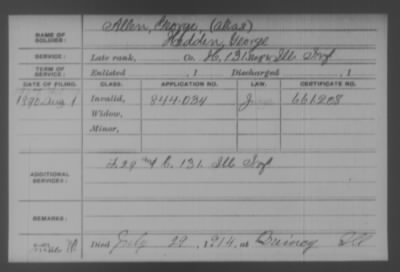 NAME OF SOLDIER: Allen, George, (alias)
Hadden, George
SERVICE: Late rank, Co. H, 131 Ill Inf
TERM OF SERVICE: Enlisted , 1 Discharged , 1
DATE OF FILING. CLASS. APPLICATION NO. LAW. CERTIFICATE NO.
1890 Aug 1 Invalid, 844.034 June 661208
Widow,
Minor,
ADDITIONAL SERVICES: 29 C. 131 Ill Inf
REMARKS:
Died July 29, 1914, at Quincy Ill